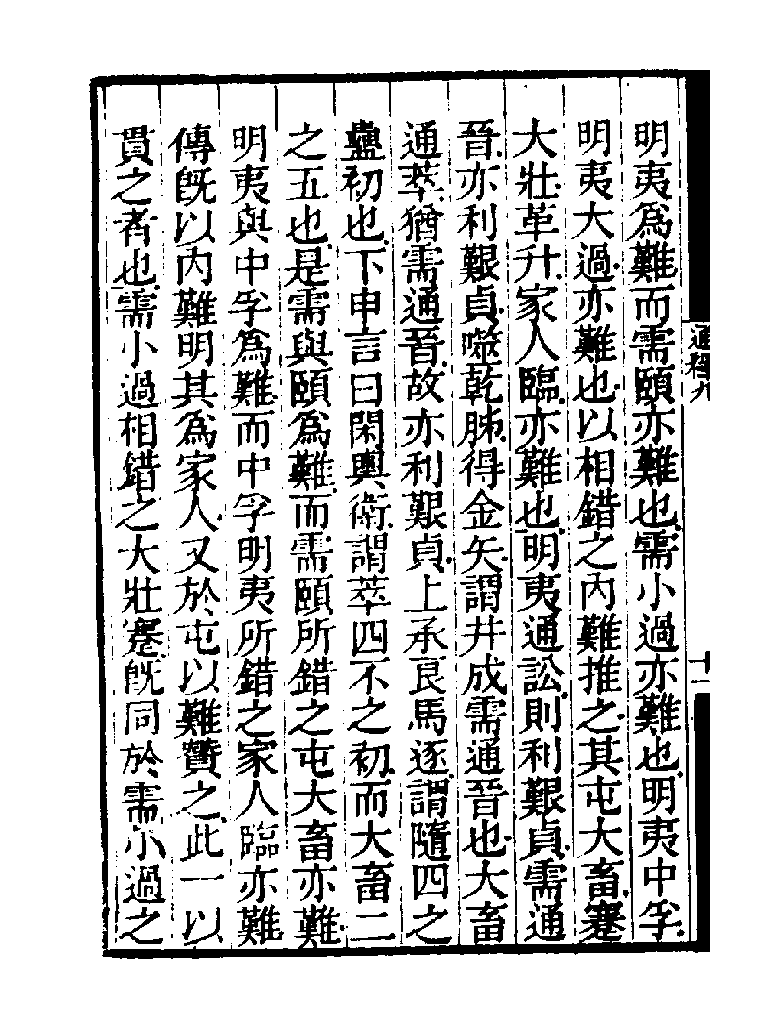 明夷爲難而需頤亦難也需小過亦難也明夷中孚
明夷大過亦難也以相錯之內難推之其屯大畜蹇
大壯革升家人臨亦難也明夷通訟則利艱貞需通
晉亦利艱貞噬乾胏得金矢謂井成需通晉也大畜
通萃猶需通晉故亦利艱貞上承良馬逐謂隨四之
蠱初也下申言曰閑輿衛謂萃四不之初而大畜二
之五也是需與頤爲難而需頤所錯之屯大畜亦難
明夷與中孚爲難而中孚明夷所錯之家人臨亦難
傳旣以內難明其爲家人又於屯以難贊之此一以
貫之者也需小過相錯之大壯蹇旣同於需小過之
通釋九
十二